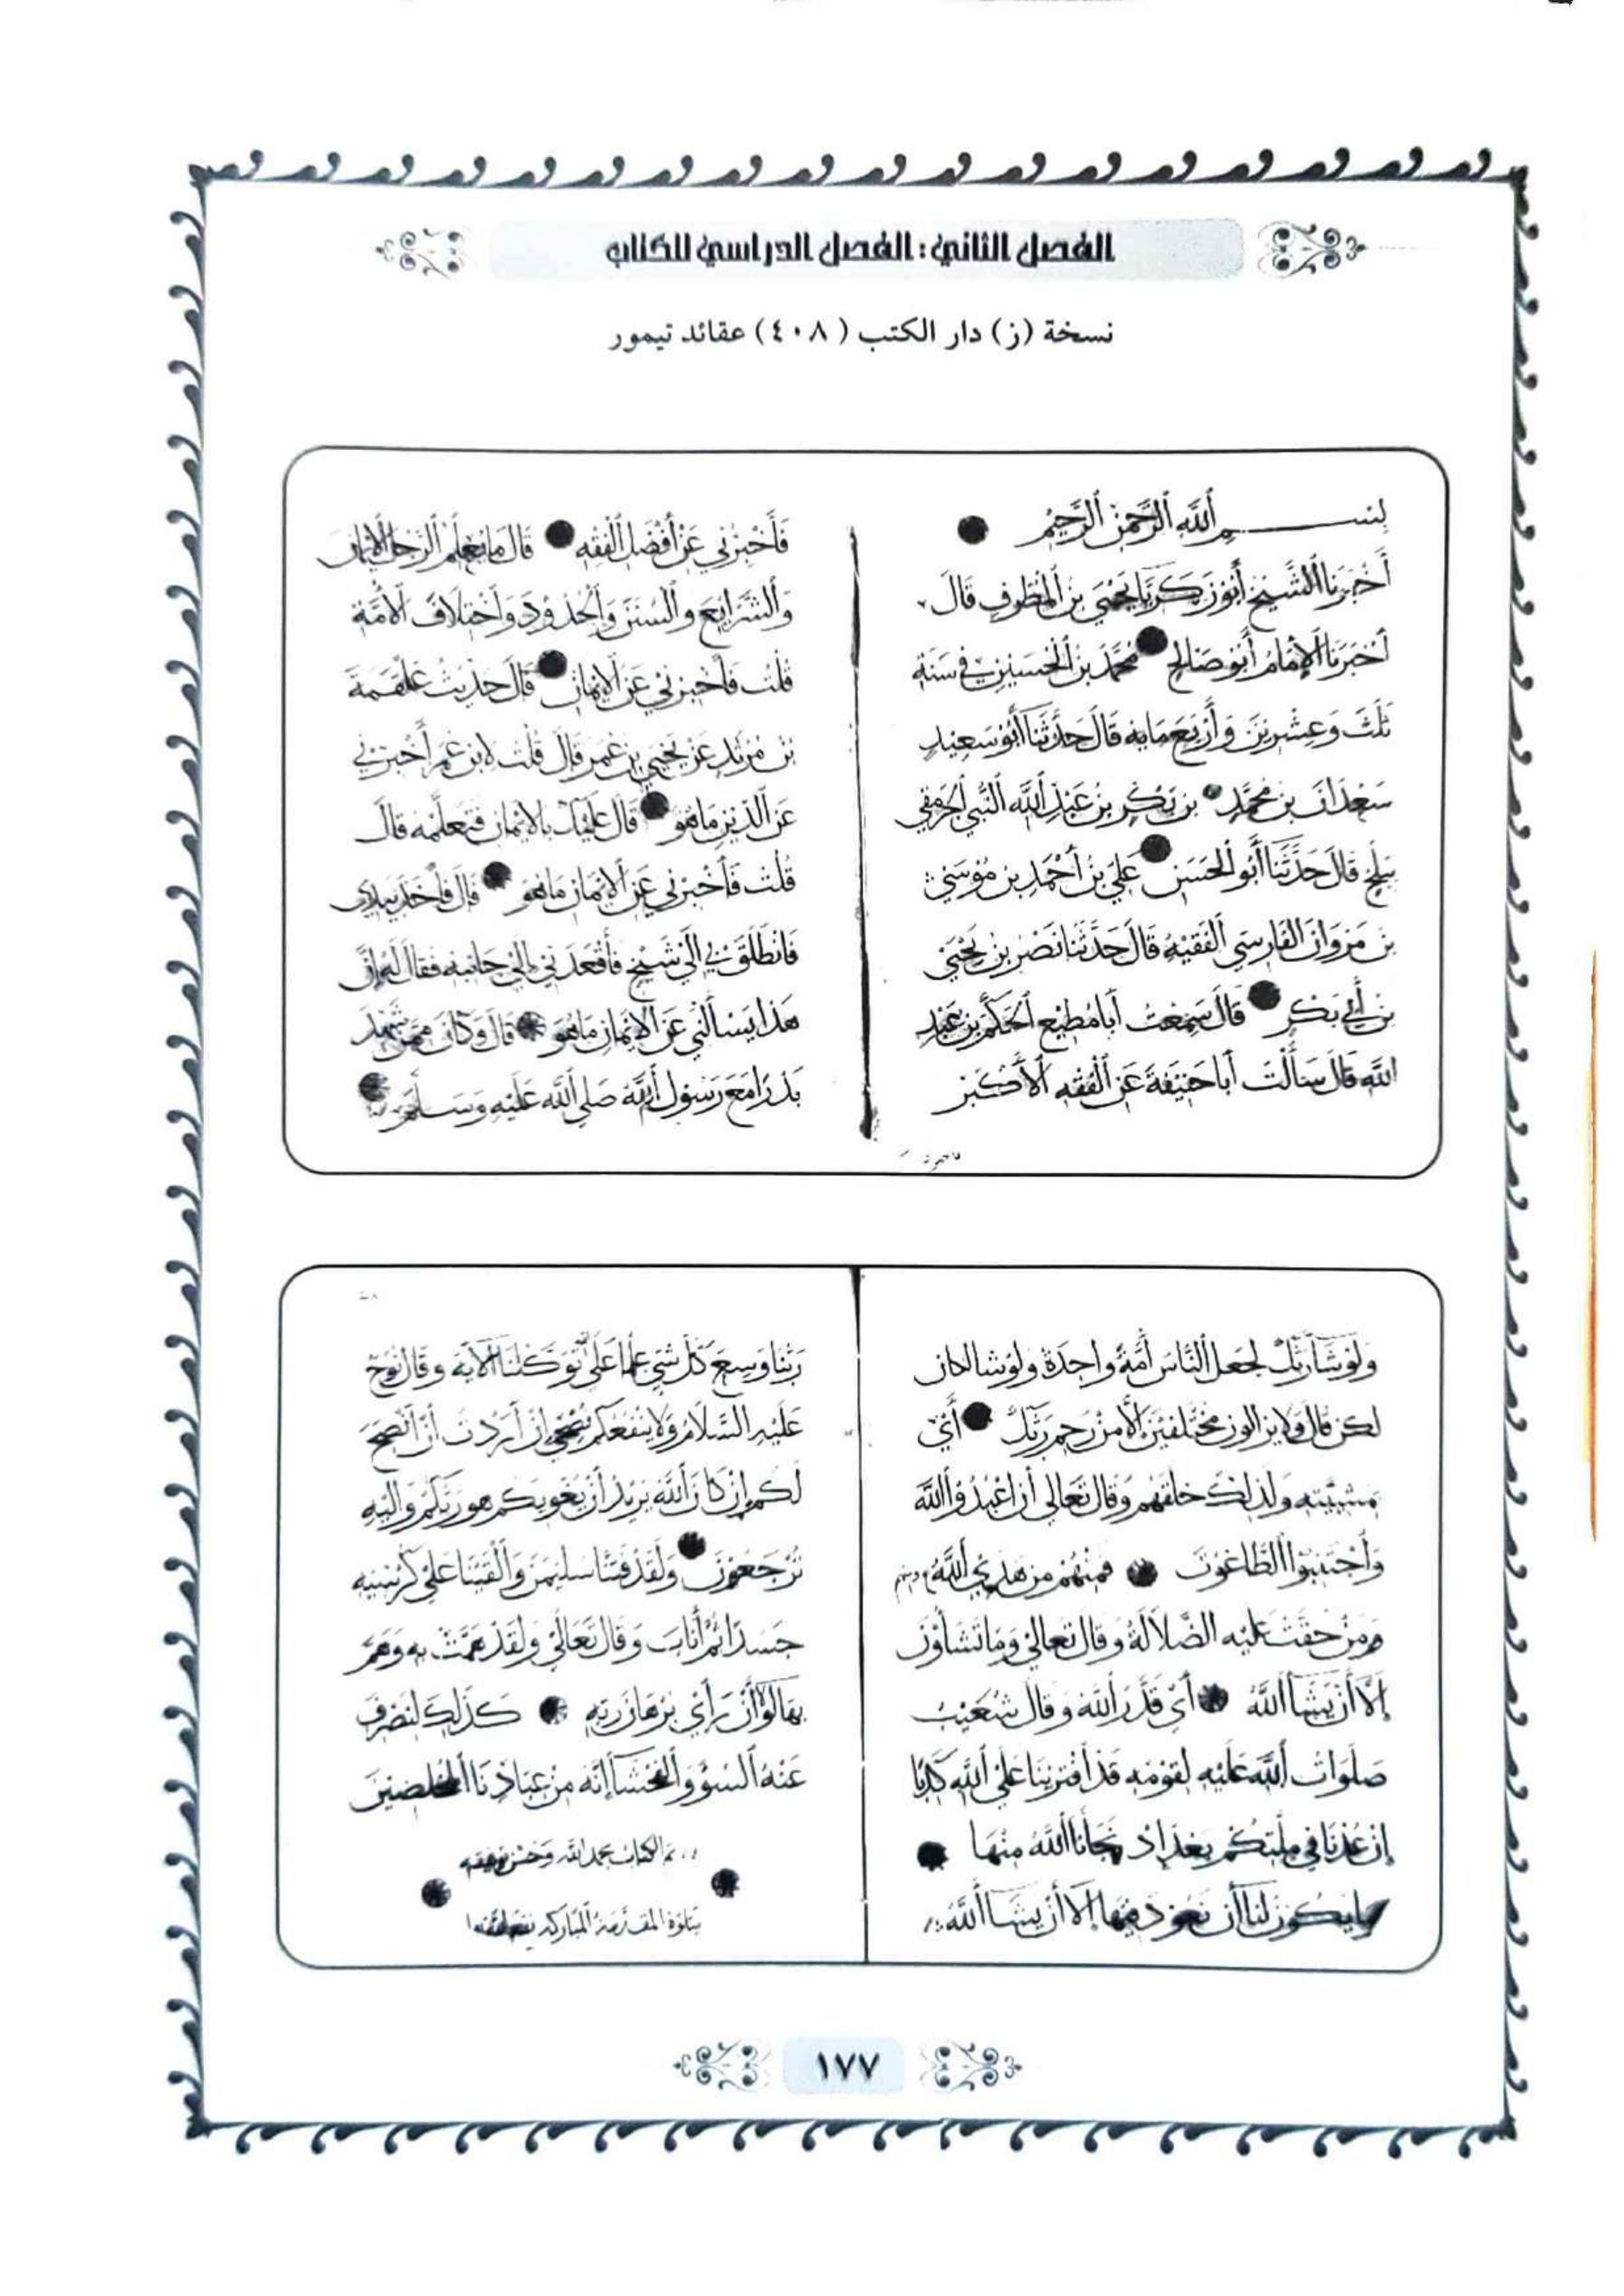 الفصل الثاني: الفصل الدراسي للكتاب
نسخة (ز) دار الكتب (٤٠٨) عقائد تيمور
بسم الله الرحمن الرحيم
أخبرنا الشيخ أبو زكريا يحيى بن المطرف قال
أخبرنا الإمام أبو صالح محمد بن الحسين في سنة
ثلث وعشرين وأربعماية قال حدثنا أبو سعيد
سعدان بن محمد بن بكر بن عبد الله
قال حدثنا أبو الحسن علي بن أحمد بن موسى
بن مروان الفارسي الفقيه قال حدثنا نصر بن يحيى
بن أبي بكر قال سمعت أبا مطيع الحكم بن عبد
الله قال سألت أبا حنيفة عن الفقه الأكبر
فأخبرني عن أفضل الفقه قال ما تعلم الرجل الإيمان
والشرايع والسنن والحدود واختلاف الأمة
قلت فأخبرني عن الإيمان قال حديث علقمة
بن مرثد عن يحيى بن عمر قال قلت لابن عمر أخبرني
عن الدين ما هو قال عليك بالإيمان فتعلمه قال
قلت فأخبرني عن الإيمان ما هو قال فأخذ بيدي
فانطلق بي إلى شيخ فأقعدني إلى جانبه فقال له إن
هذا يسألني عن الإيمان ما هو قال وكان ممن شهد
بدرا مع رسول الله صلى الله عليه وسلم
ولو شآ ربك لجعل الناس أمة واحدة ولو شا لكان
لكن قال ولا يزالون مختلفين إلا من رحم ربك أي
مشيئته ولذلك خلقهم وقال تعالى أن اعبدوا الله
واجتنبوا الطاغوت فمنهم من هدى الله
ومن حقت عليه الضلالة وقال تعالى وما تشاؤن
إلا أن يشآ الله أي قدر الله وقال شعيب
صلوات الله عليه لقومه قد افترينا على الله كذبا
إن عدنا في ملتكم بعد إذ نجانا الله منها
وما يكون لنا أن نعود فيها إلا أن يشآ الله
ربنا وسع كل شي علما على الله توكلنا الآية وقال نوح
عليه السلام ولا ينفعكم نصحي إن أردت أن أنصح
لكم إن كان الله يريد أن يغويكم هو ربكم وإليه
ترجعون ولقد فتنا سليمن وألقينا على كرسيه
جسدا ثم أناب وقال تعالى ولقد همت به وهم
بها لولا أن رأى برهان ربه كذلك لنصرف
عنه السوؤ والفحشآ إنه من عبادنا المخلصين
تم الكتاب بحمد الله وحسن توفيقه
يتلوه المقدمة المباركة
١٧٧